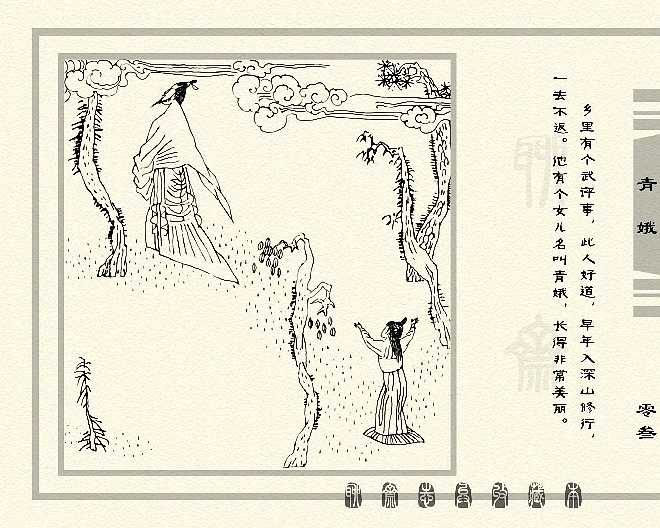 乡里有个武评事，此人好道，早年入深山修行，
一去不返。他有个女儿名叫青娥，长得非常美丽。
青娥
零叁
聊斋志异收藏本